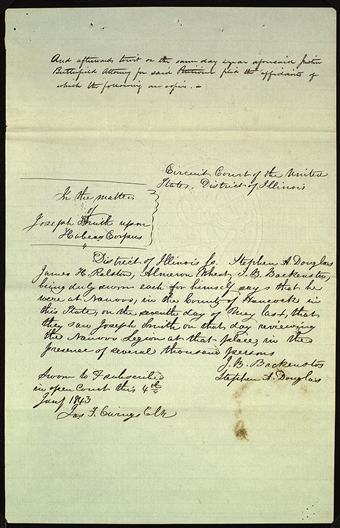 And afterwards towit on the same day & year aforesaid Justin
Butterfield Attorney for said Petitioner filed the affidavits of
which the following are copies. —
Circuit Court of the United
States, District of Illinois
In the matter
of
Joseph Smith upon
Habeas Corpus
District of Illinois Ss. Stephen A. Douglas
James H. Ralston, Almeron Wheat, J. B. Backenstos,
being duly sworn each for himself say that he
were at Nauvoo, in the County of Hancock in
this State, on the seventh day of May last, that
they saw Joseph Smith on that day reviewing
the Nauvoo Legion at that place, in the
presence of several thousand persons
J. B. Backenstos
Stephen A. Douglass
Sworn to & subscribed
in open Court this 4th
Jany 1843
Jas. F. Owings Clk